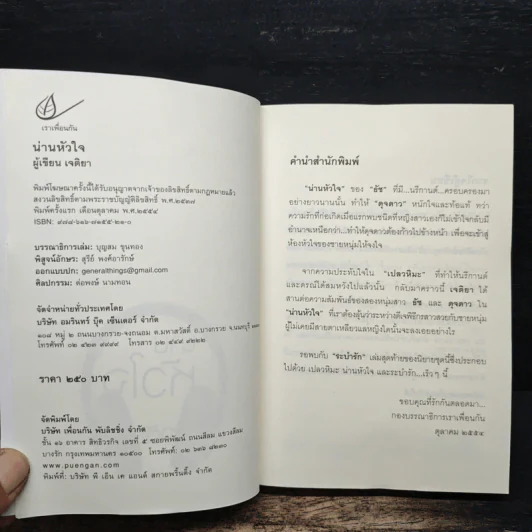 เราเพื่อนกัน
น่านหัวใจ
ผู้เขียน เจติยา
พิมพ์โฆษณาครั้งนี้ได้รับอนุญาตจากเจ้าของลิขสิทธิ์ตามกฎหมายแล้ว
สงวนลิขสิทธิ์ตามพระราชบัญญัติลิขสิทธิ์ พ.ศ.๒๕๓๗
พิมพ์ครั้งแรก เดือนตุลาคม พ.ศ.๒๕๕๔
ISBN:
บรรณาธิการเล่ม: บุญสม ขุนทอง
พิสูจน์อักษร: สุรีย์ พงศ์อารักษ์
ออกแบบปก: generalthings@gmail.com
ศิลปกรรม: ต่อพงษ์ นามทอน
จัดจำหน่ายทั่วประเทศโดย
บริษัท อมรินทร์ บุ๊ค เซ็นเตอร์ จำกัด
๑๐๘ หมู่ ๒ ถนนบางกรวย-จงถนอม ต.มหาสวัสดิ์ อ.บางกรวย จ.นนทบุรี
โทรศัพท์ ๐๒ ๔๒๓ ๙๙๙๙ โทรสาร ๐๒ ๔๔๙ ๙๒๒๒
ราคา ๒๕๐ บาท
จัดพิมพ์โดย
บริษัท เพื่อนกัน พับลิชชิ่ง จำกัด
ชั้น ๑๖ อาคาร สิทธิวรกิจ เลขที่ ๕ ซอยพิพัฒน์ ถนนสีลม แขวงสีลม
บางรัก กรุงเทพมหานคร ๑๐๕๐๐ โทรศัพท์ ๐๒ ๖๓๖
www.puengan.com
พิมพ์ที่: บริษัท พี เอ็น เค แอนด์ สกายพริ้นติ้ง จำกัด
คำนำสำนักพิมพ์
"น่านหัวใจ" ของ "ธัช" ที่มี...นรีกานต์...ครอบครองมา
อย่างยาวนานนั้น ทำให้ "ดุจดาว" หนักใจและท้อแท้ ทว่า
ความรักที่ก่อเกิดเมื่อแรกพบชนิดที่หญิงสาวเองก็ไม่เข้าใจกลับมี
อำนาจเหนือกว่า...ทำให้ดุจดาวต้องก้าวไปข้างหน้า เพื่อจะเข้าสู่
ห้องหัวใจของชายหนุ่มให้จงใจ
จากความประทับใจใน "เปลวหิมะ" ที่ทำให้นรีกานต์
และดรณ์ได้สมหวังไปแล้วนั้น กลับมาคราวนี้ เจติยา ได้
สานต่อความสัมพันธ์ของสองหนุ่มสาว ธัช และ ดุจดาว ใน
"น่านหัวใจ" ที่เราต้องลุ้นว่าระหว่างดีเจพิธีกรสาวสวยกับชายหนุ่ม
ผู้ไม่เคยมีสายตาเหลียวแลหญิงใดนั้นจะลงเอยอย่างไร
รอพบกับ "ระบำรัก" เล่มสุดท้ายของนิยายชุดนี้ซึ่งประกอบ
ไปด้วย เปลวหิมะ น่านหัวใจ และระบำรัก...เร็วๆ นี้
ขอบคุณที่รักกันตลอดมา...
กองบรรณาธิการเราเพื่อนกัน
ตุลาคม ๒๕๕๔